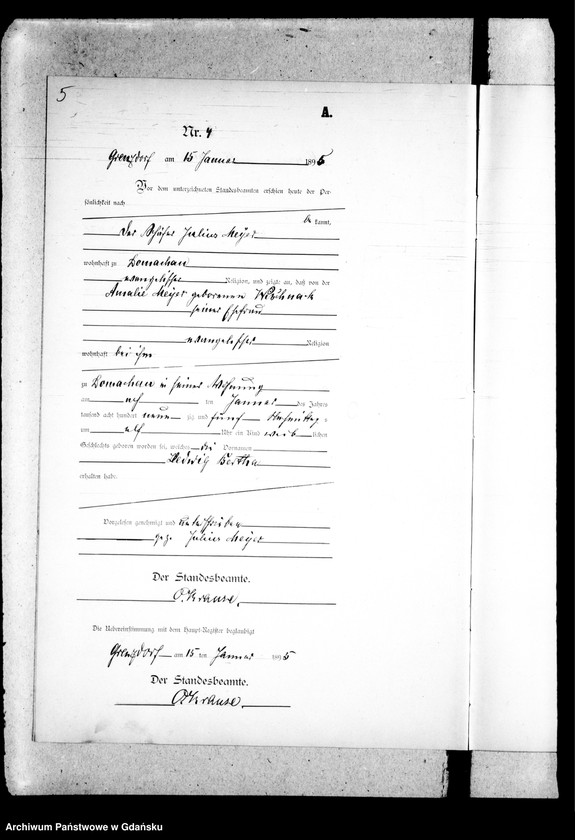 5
A.
Nr. 4
Grenzdorf am 15 Januar 1895
Vor dem unterzeichneten Standesbeamten erschien heute der Per-
sönlichkeit nach
be kannt,
der Schäfer Julius Meyer
wohnhaft zu Domachau
evangelischer Religion, und zeigte an, daß von der
Amalie Meyer geborenen
seiner Ehefrau
evangelischer Religion
wohnhaft bei ihm
zu Domachau in seiner Wohnung
am ten Januar des Jahres
tausend acht hundert neun zig und fünf Nachmittags
um Uhr ein Kind weib lichen
Geschlechts geboren worden sei, welches die Vornamen
Hedwig Bertha
erhalten habe.
Vorgelesen, genehmigt und unterschrieben
gez. Julius Meyer
Der Standesbeamte.
O. Krause.
Die Uebereinstimmung mit dem Haupt-Register beglaubigt
Grenzdorf am 15 ten Januar 1895
Der Standesbeamte.
O. Krause.
Archiwum Państwowe w Gdańsku